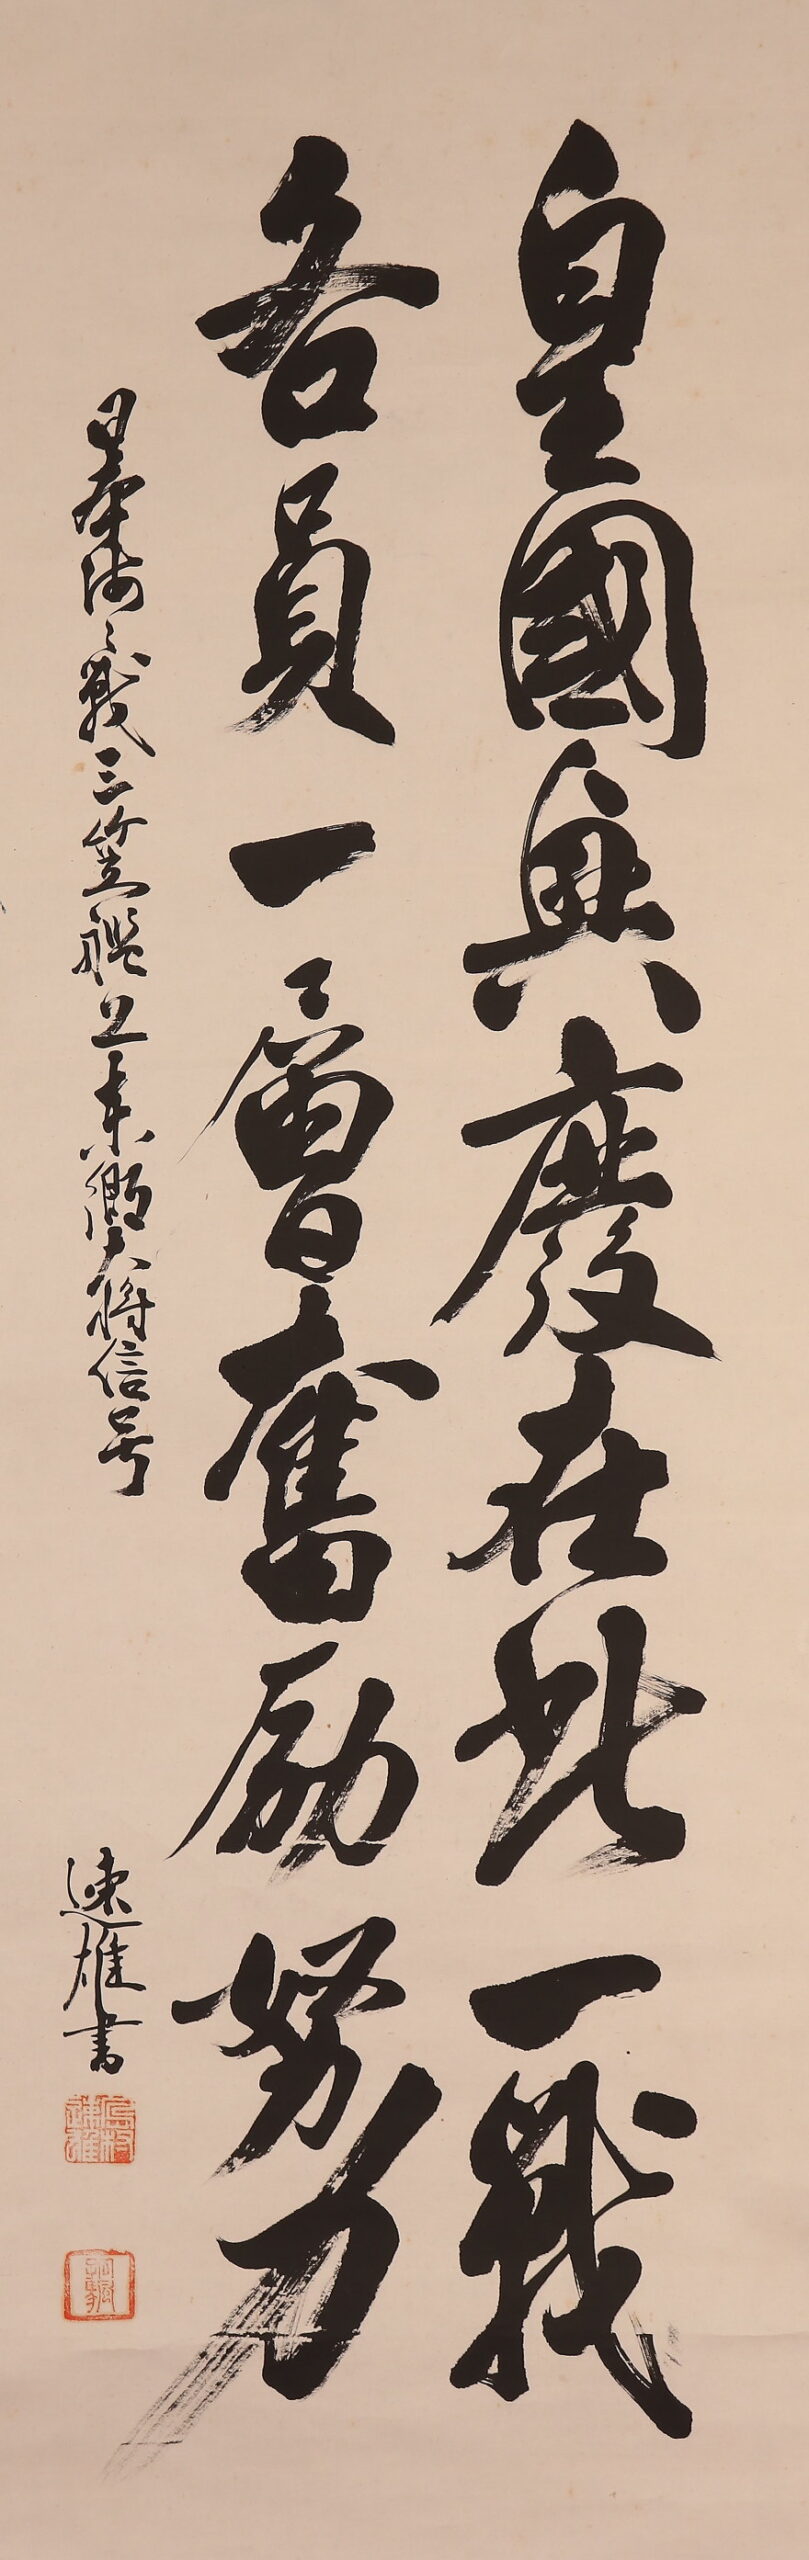 皇國興廢在此一戰
各員一層奮励努力
日本海之戰三笠艦上東郷大将信号
速雄書